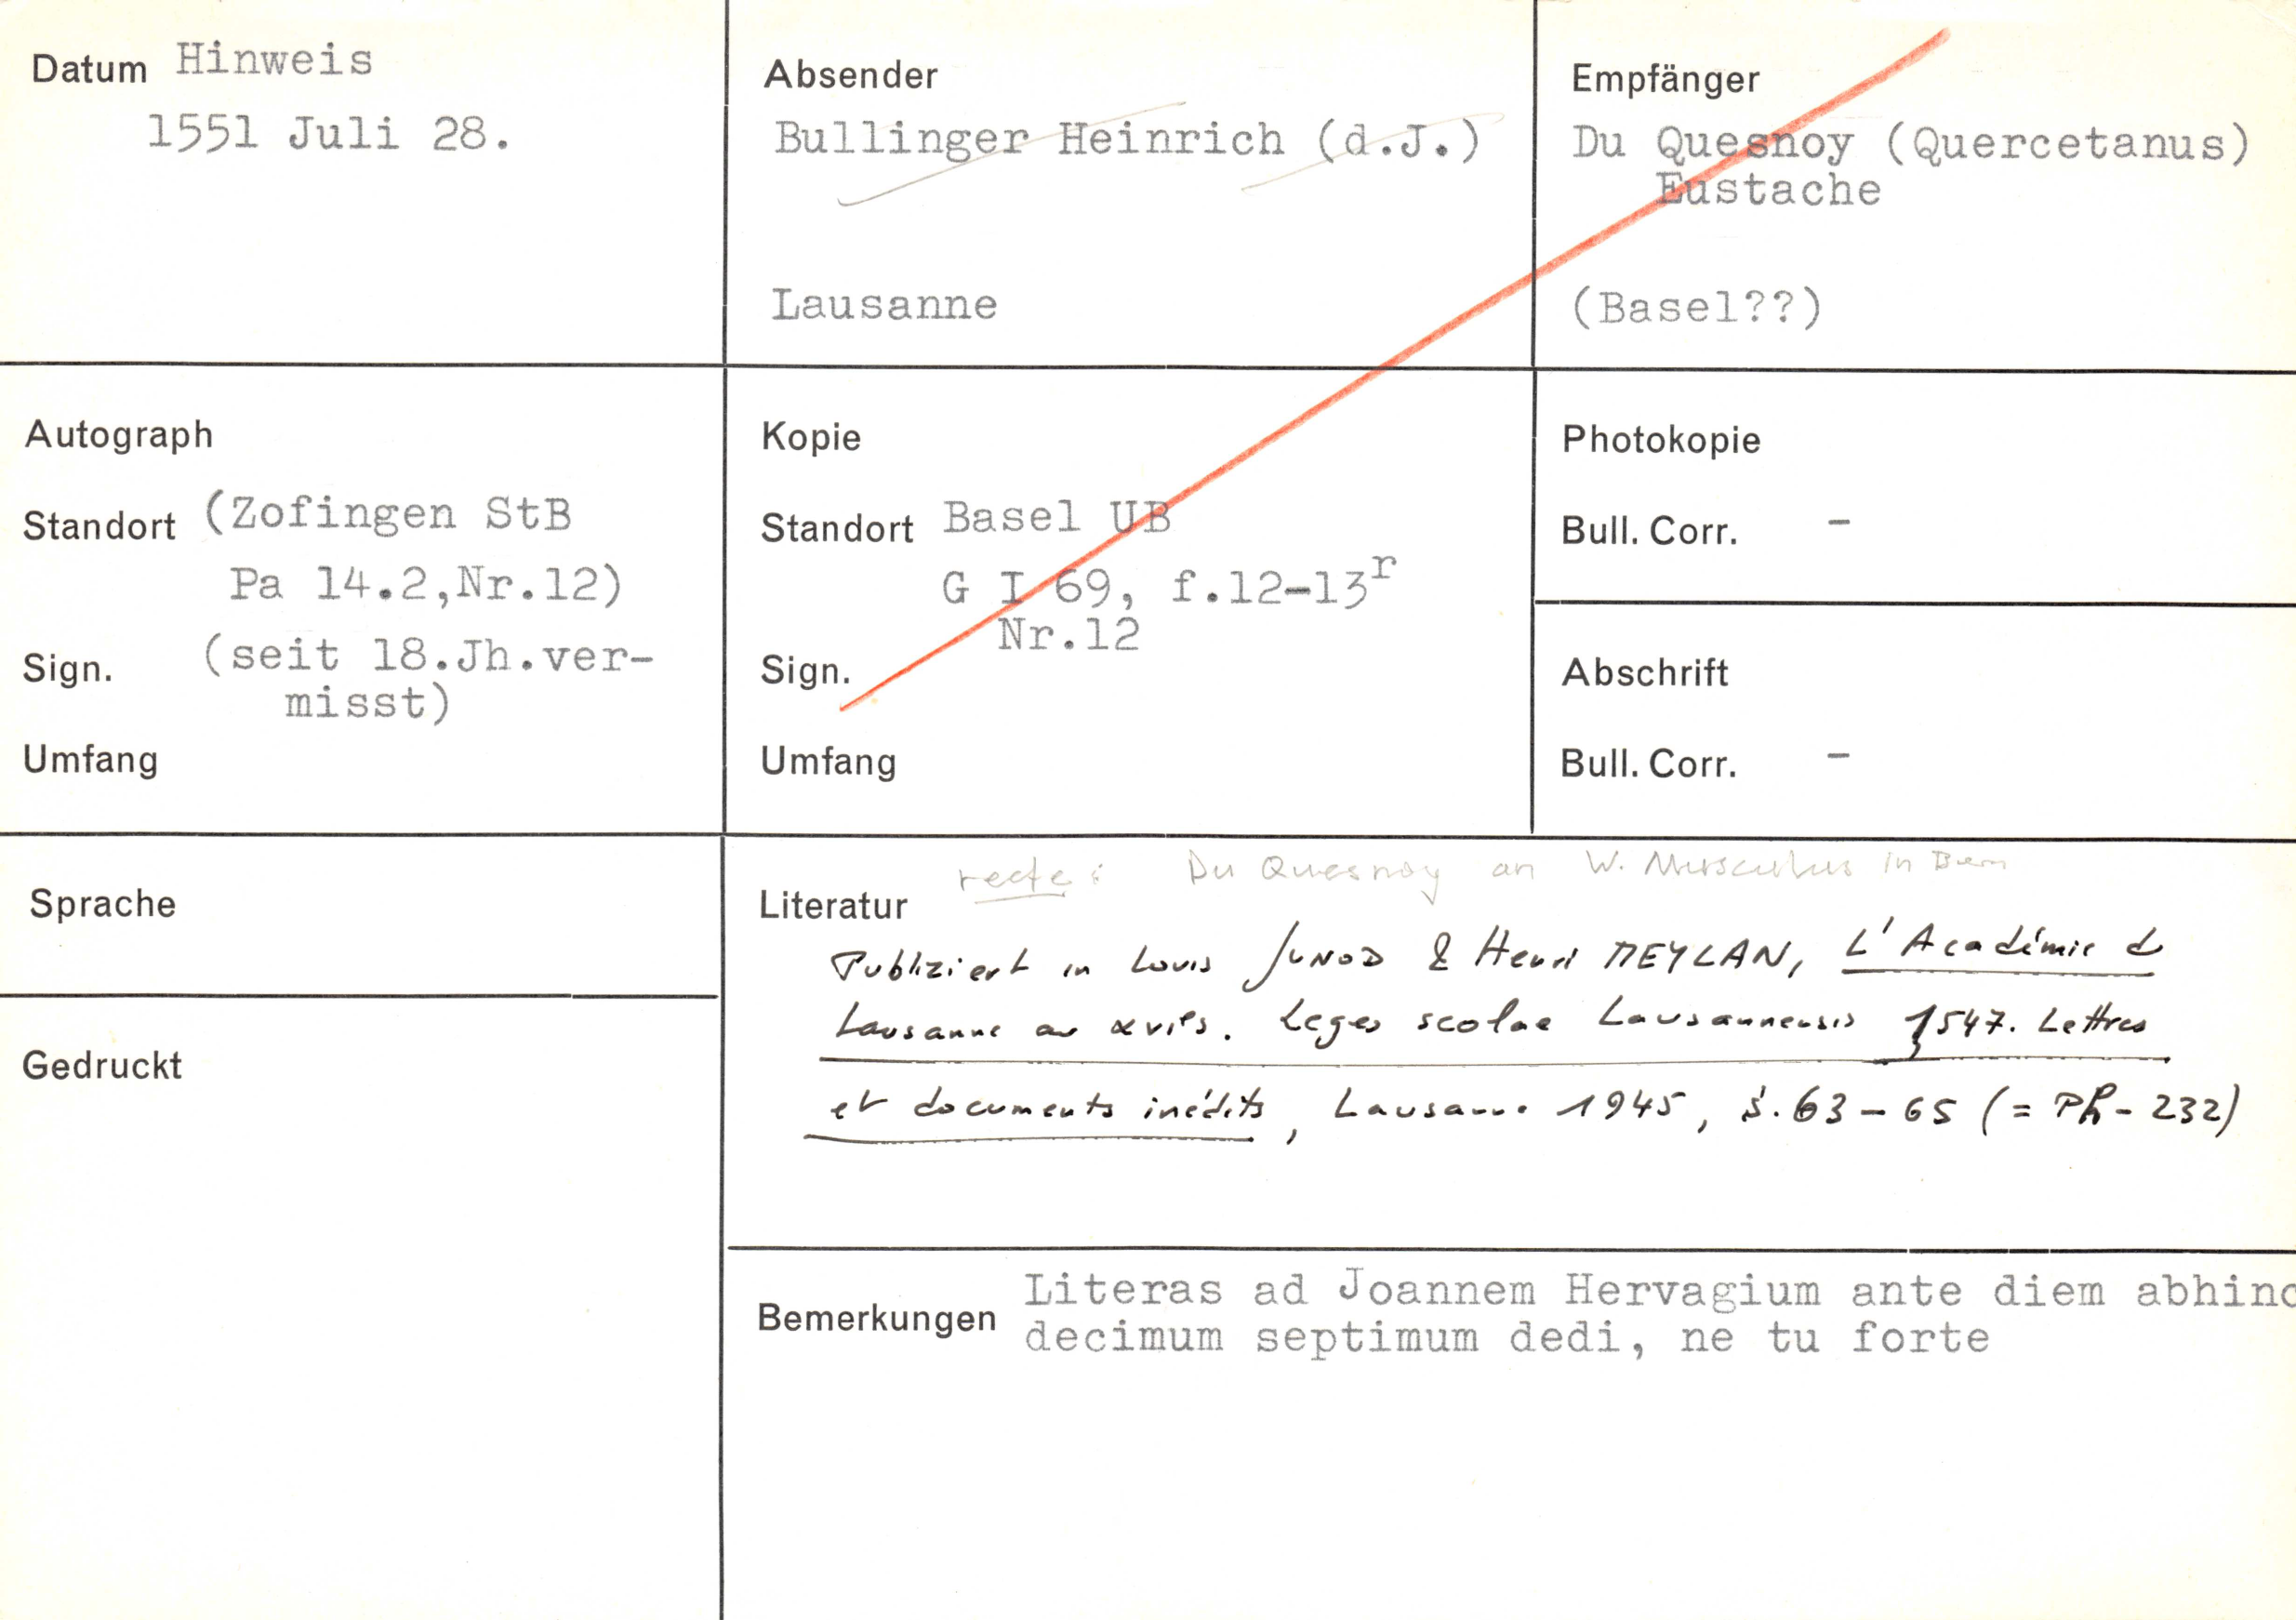 Datum Hinweis
1551 Juli 28.
Absender
Bullinger Heinrich (d.J.)
Lausanne
Empfänger
Du Quesnoy (Quercetanus)
Eustache
(Basel??)
Autograph
Standort (Zofingen StB
Pa 14.2,Nr.12)
Sign. (seit 18.Jh.ver-
misst)
Umfang
Kopie
Standort Basel UB
G I 69, f.12-13r
Nr.12
Sign.
Umfang
Photokopie
Bull. Corr. -
Abschrift
Bull. Corr. -
Sprache
Gedruckt
recte: Du Quesnoy an W. Musculus in Bern
Literatur
Publiziert in Louis JUNOD & Henri MEYLAN, L'Académie d
Lausanne au xvie s. Leges scolae Lausannensis 1547. Lettres
et documents inédits, Lausanne 1945, S. 63-65 (= Ph-232)
Bemerkungen Literas ad Joannem Hervagium ante diem abhinc
decimum septimum dedi, ne tu forte